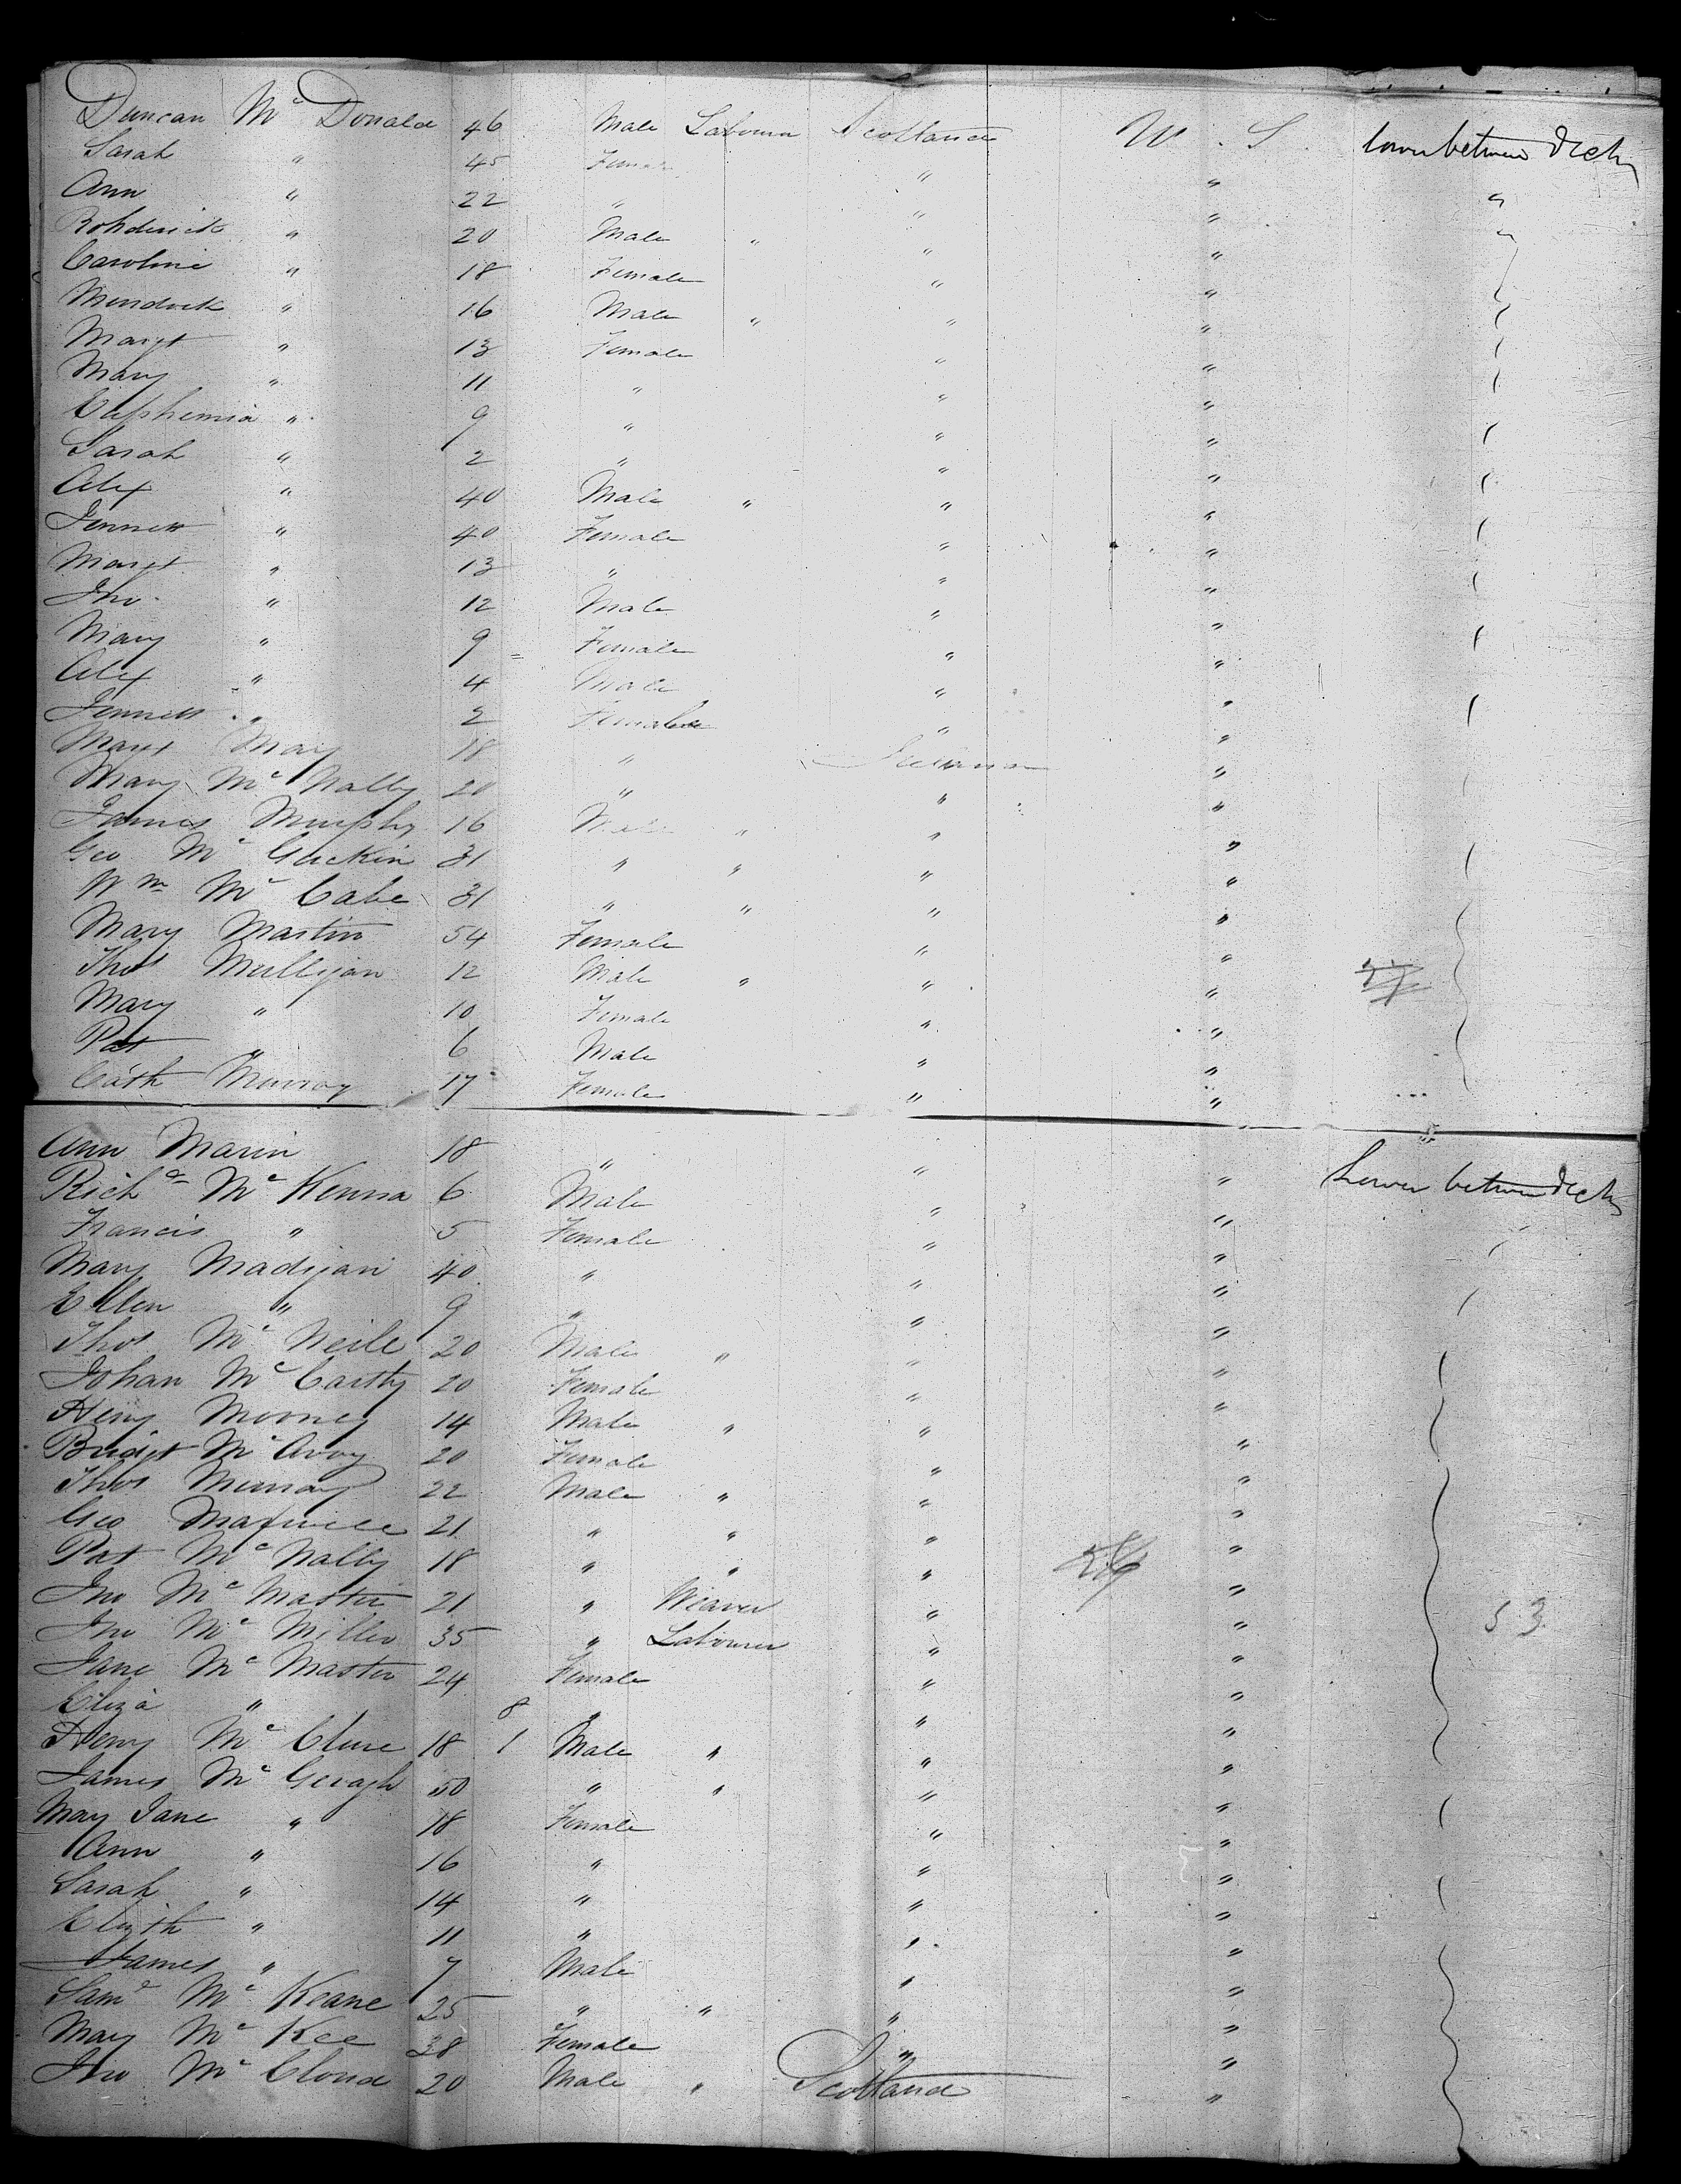 Duncan Mc Donald 46 Male Labourer Scotland U . S . lower between decks
Sarah " 45 Female " " "
Ann " 22 " " " "
Rohderick " 20 Male " " "
Caroline " 18 Female " "
Murdock " 16 Male " " "
Margt " 13 Female " "
Mary " 11 " " "
Euphemia " 9 " " "
Sarah " 2 " " "
Alex " 40 Male " " "
Jennett " 40 Female " "
Margt " 13 " " "
Jno " 12 Male " "
Mary " 9 Female " "
Alex " 4 Male " "
Jennett " 2 Female " "
Margt May 18 " "
Mary Mc Nally 20 " " "
James Murphy 16 Male " " "
Geo Mc Guckin 31 " " " "
Wm Mc Cabe 31 " " " "
Mary Martin 54 Female " "
Thos Mulligan 12 Male " " "
Mary " 10 Female " "
Pat " 6 Male " "
Cath Murray 17 Female " "
Ann Marin 18 " " " Lower between decks
Richd Mc Kenna 6 Male " "
Francis " 5 Female " "
Mary Madigan 40 " " "
Ellen " 9 " " "
Thos Mc Neile 20 Male " " "
Johan Mc Carthy 20 Female " "
Henry Mooney 14 Male " " "
Bridgt Mc Avoy 20 Female " "
Thos Murray 22 Male " " "
Geo Maxwell 21 " " " "
Pat Mc Nally 18 " " " "
Jno Mc Master 21 " Weaver " "
Jno Mc Miller 35 " Labourer " " 53
Jane Mc Master 24 Female " "
Eliza " 8 " " "
Henry Mc Clure 18 1 Male " " "
James Mc Geragh 50 " " " "
Mary Jane " 18 Female " "
Ann " 16 " " "
Sarah " 14 " " "
Elizth " 11 " " "
James " 7 Male " "
Saml Mc Keane 25 " " " "
Mary Mc Kee 38 Female " "
Jno Mc Cloud 20 Male " Scotland "